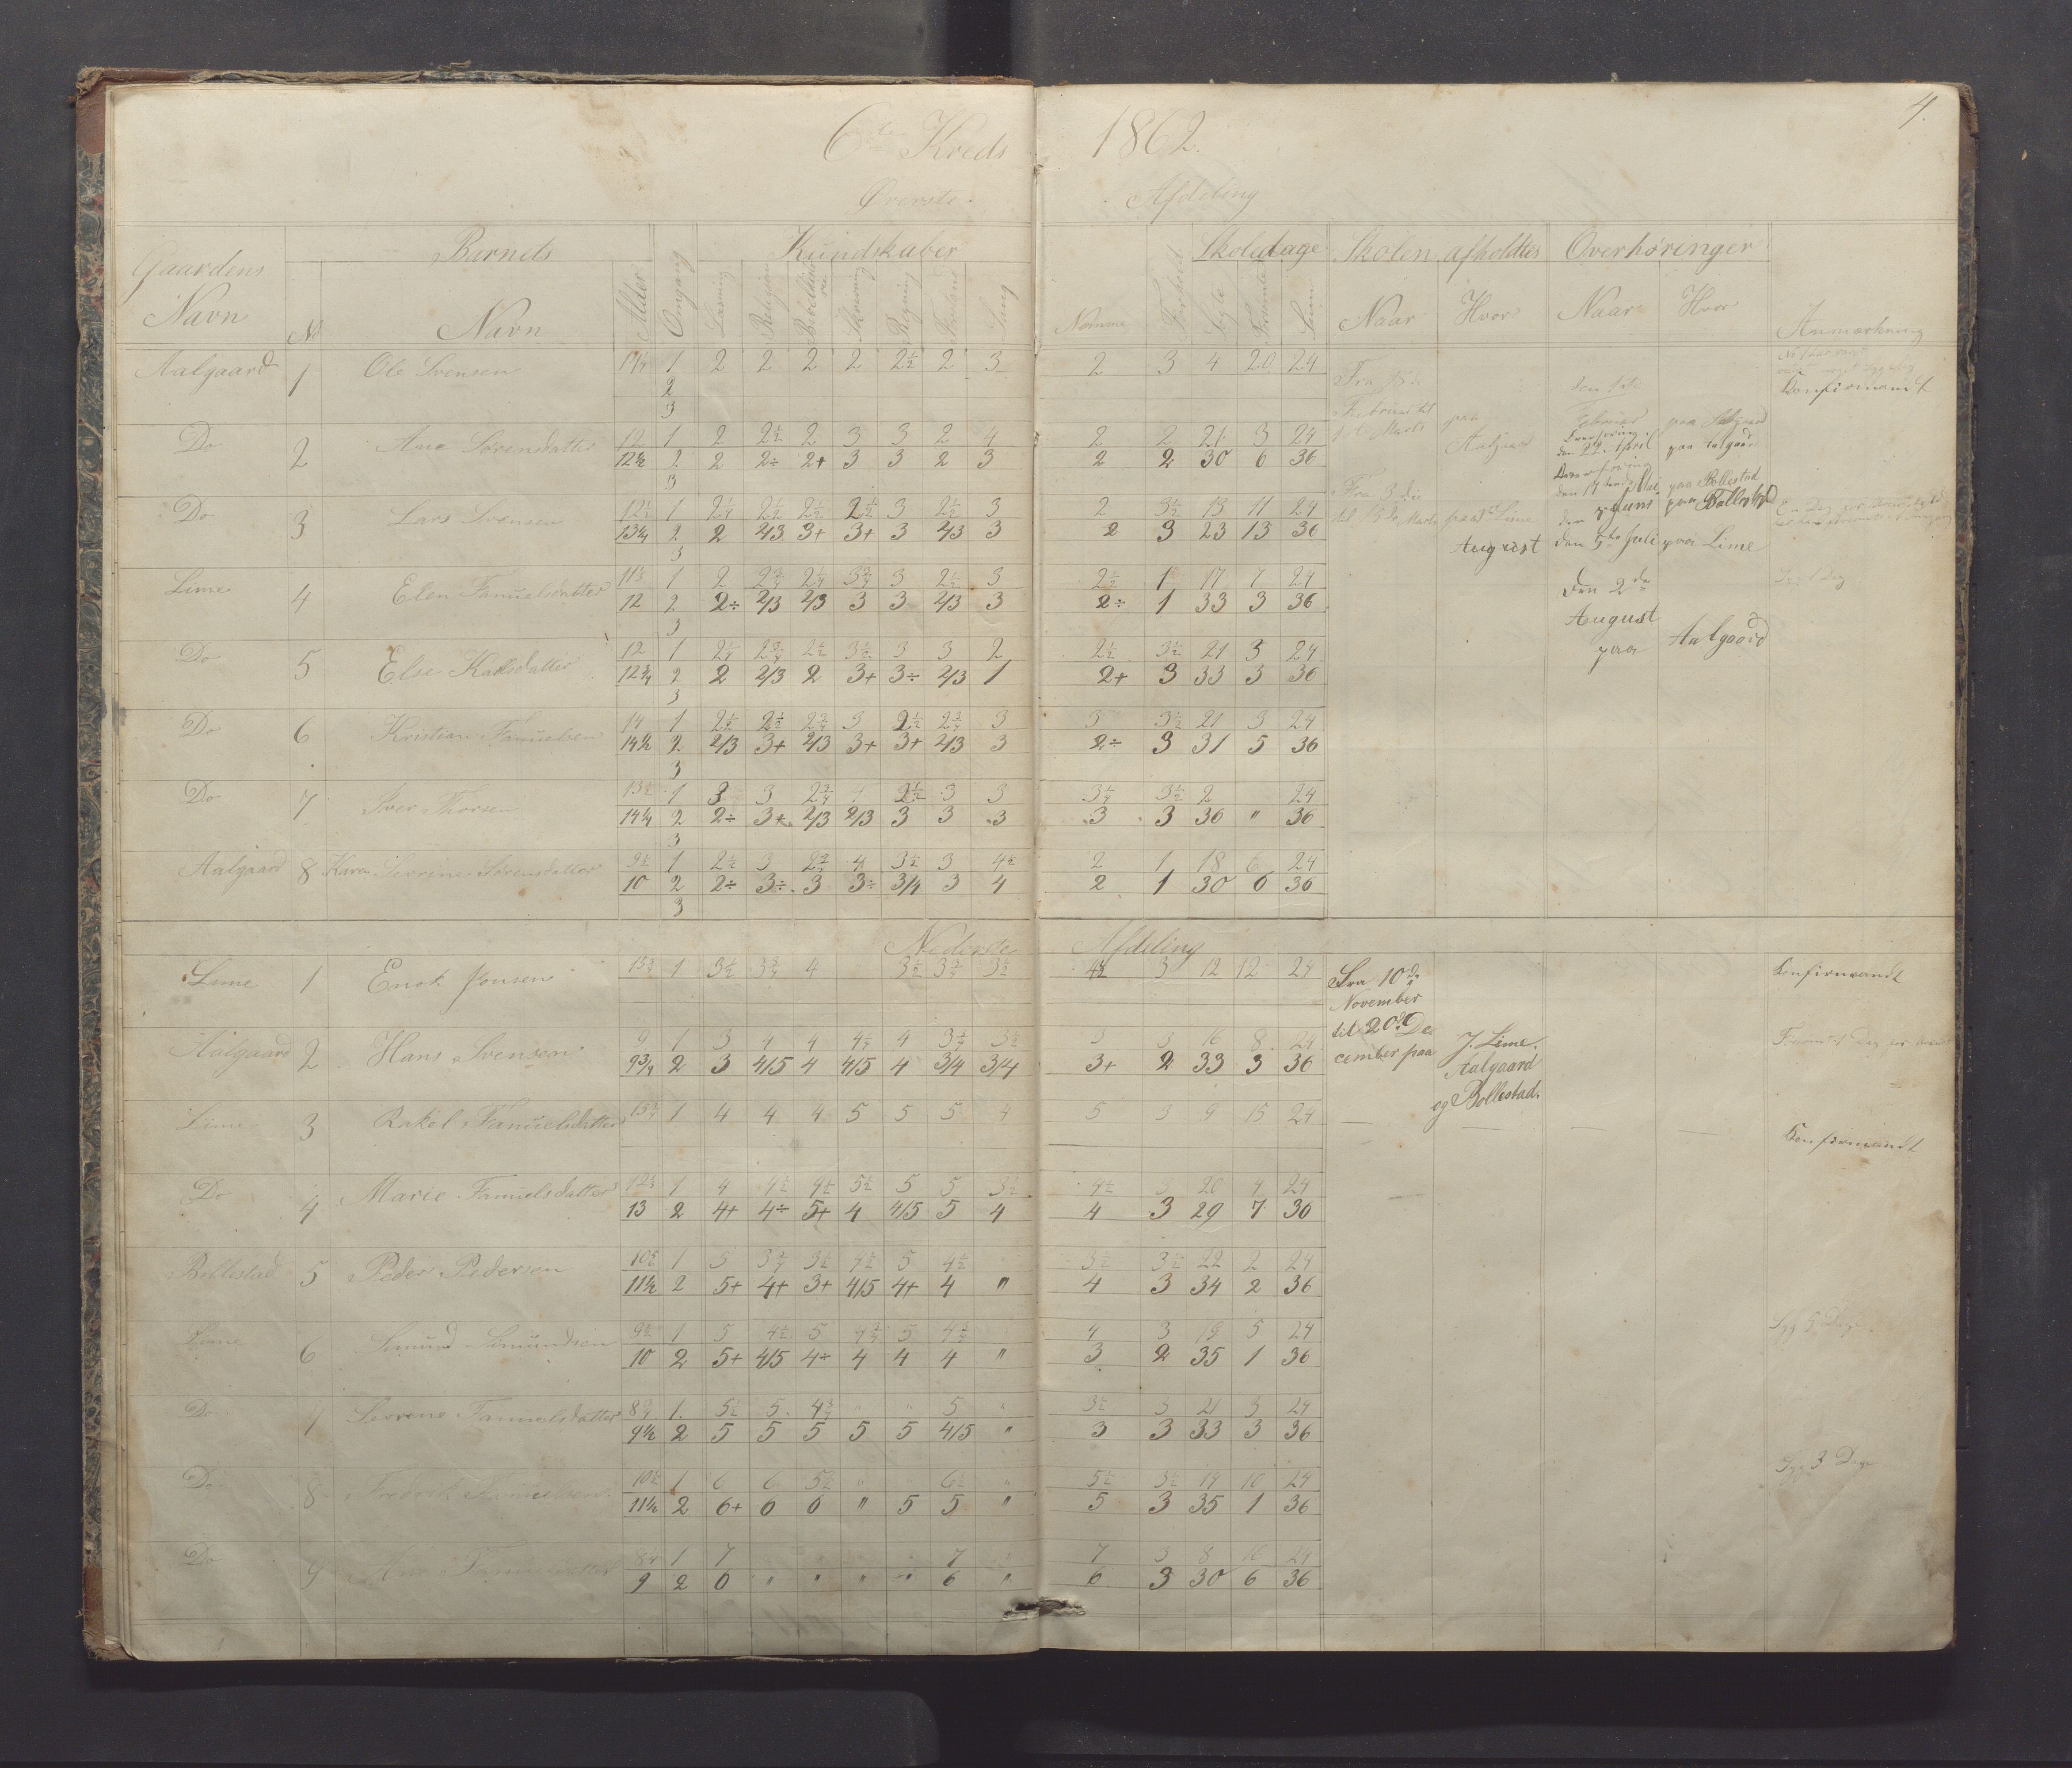 4.
6te Kreds 1862.
Øverste Afdeling
Gaardens Navn Barnets Kundskaber Skoledage Skolen afholdtes Overhøringer
No Navn Alder Omgang Læsning Religion Skrivning Regning Sang Forhold Søgte Forsømte Sum Naar Hvor Naar Hvor Anmærkning
Aalgaard 1 Ole Svensen 1 2 2 2 2 2½ 2 3 2 3 4 20 24 Konfirmandt
2
3
Do 2 Ane Sørensdatter 12 1 2 2½ 2 3 3 2 4 2 2 21 3 24
12½ 2 2 2÷ 2+ 3 3 2 3 2 2 30 6 36
3
Do 3 Lars Svensen 12½ 1 2¼ 2½ 2½ 2½ 3 2½ 3 2 3½ 13 11 24
13¼ 2 2 2/3 3+ 3+ 3 2/3 3 2 3 23 13 36
3
Lime 4 Elen Samuelsdatter 11½ 1 2 2¾ 2¼ 3¾ 3 2½ 3 2½ 1 17 7 24
12 2 2÷ 2/3 2/3 3 3 2/3 3 2÷ 1 33 3 36
3
Do 5 Else Karlsdatter 12 1 2¼ 2¾ 2½ 3½ 3 3 2 2½ 3½ 21 3 24
12¾ 2 2 2/3 2 3+ 3÷ 2/3 1 2+ 3 33 3 36
3
Do 6 Kristian Samuelsen 14 1 2½ 2½ 2¾ 3 2½ 2¾ 3 3 3½ 21 3 24
14½ 2 2/3 3+ 2/3 3+ 3+ 2/3 3 2÷ 3 31 5 36
3
Do 7 Iver Thorsen 13½ 1 3 3 2¾ 4 2½ 3 3 3¼ 3½ 2 24
14¼ 2 2÷ 3+ 2/3 2/3 3 3 3 3 3 36 " 36
3
Aalgaard 8 Karen Severine Sørensdatter 9½ 1 2½ 3 2¾ 4 3½ 3 4½ 2 1 18 6 24
10 2 2÷ 3÷ 3 3÷ 3/4 3 4 2 1 30 6 36
3
Fra 15de Februar til 1st Marts paa Aalgaard
Fra 3die til 15de Marts paa Lime
August
den 1ste Februar paa Aalgaard
Overhøring den 22. April paa Aalgaar
Overhøring den 17 Mai paa Bollestad
den 7 Juni paa Bollestad
den 5te Juli paa Lime
Den 2den August paa Aalgaard
Nederste Afdeling
Lime 1 Enok Jonsen 15¾ 1 3½ 3¾ 4 3½ 3¾ 3½ 4½ 3 12 12 24 Konfirmandt
Aalgaard 2 Hans Svenson 9 1 3 4 4 4½ 4 3½ 3½ 3 3 16 8 24
9¾ 2 3 4/5 4 4/5 4 3/4 3/4 3+ 2 33 3 36
Lime 3 Rakel Samuelsdatter 15¾ 1 4 4 4 5 5 5 4 5 3 9 15 24 Konfirmandt
Do 4 Marie Samuelsdatter 12½ 1 4 4½ 4½ 5½ 5 5 3½ 4½ 3 20 4 24
13 2 4+ 4÷ 5+ 4 4/5 5 4 4 3 29 7 36
Bollestad 5 Peder Pedersen 10¾ 1 5 3¾ 3½ 4½ 5 4½ 3½ 3½ 22 2 24
11½ 2 5+ 4+ 3+ 4/5 4+ 4 " 4 3 34 2 36
Lime 6 Simund Simundsen 9½ 1 5 4½ 5 4¾ 5 4¾ 4 3 19 5 24 Syg 5 Dage
10 2 5+ 4/5 4÷ 4 4 4 " 3 2 35 1 36
Do 7 Severine Samuelsdatter 8¾ 1 5½ 5 4¾ " " 5 " 3½ 3 21 3 24
9½ 2 5 5 5 5 5 4/5 " 3 3 33 3 36
Do 8 Fredrik Samuelsen 10½ 1 6 6 5½ " " 6½ " 5½ 3½ 14 10 24 Syg 3 Dage
11¼ 2 6+ 6 6 " 5 5 " 5 3 35 1 36
Do 9 Samuelsdatter 8¼ 1 7 7 7 3 8 16 24
9 2 6 " " " " 6 " 6 3 30 6 36
Fra 10de November til 20de December paa Lime. Aalgaard og Bollestad.